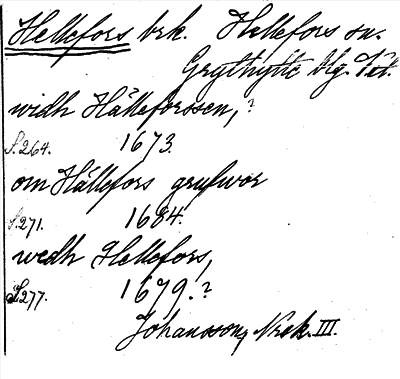 Hellefors brk. Hellefors sn.
Grythytte blg. Vstl.
widh Hälleforssen,?
S. 264. 1673.
om Hällefors grufwor
S. 271. 1684.
wedh Hellefors,
S. 277. 1679.?
Johansson, Nrsk. III.